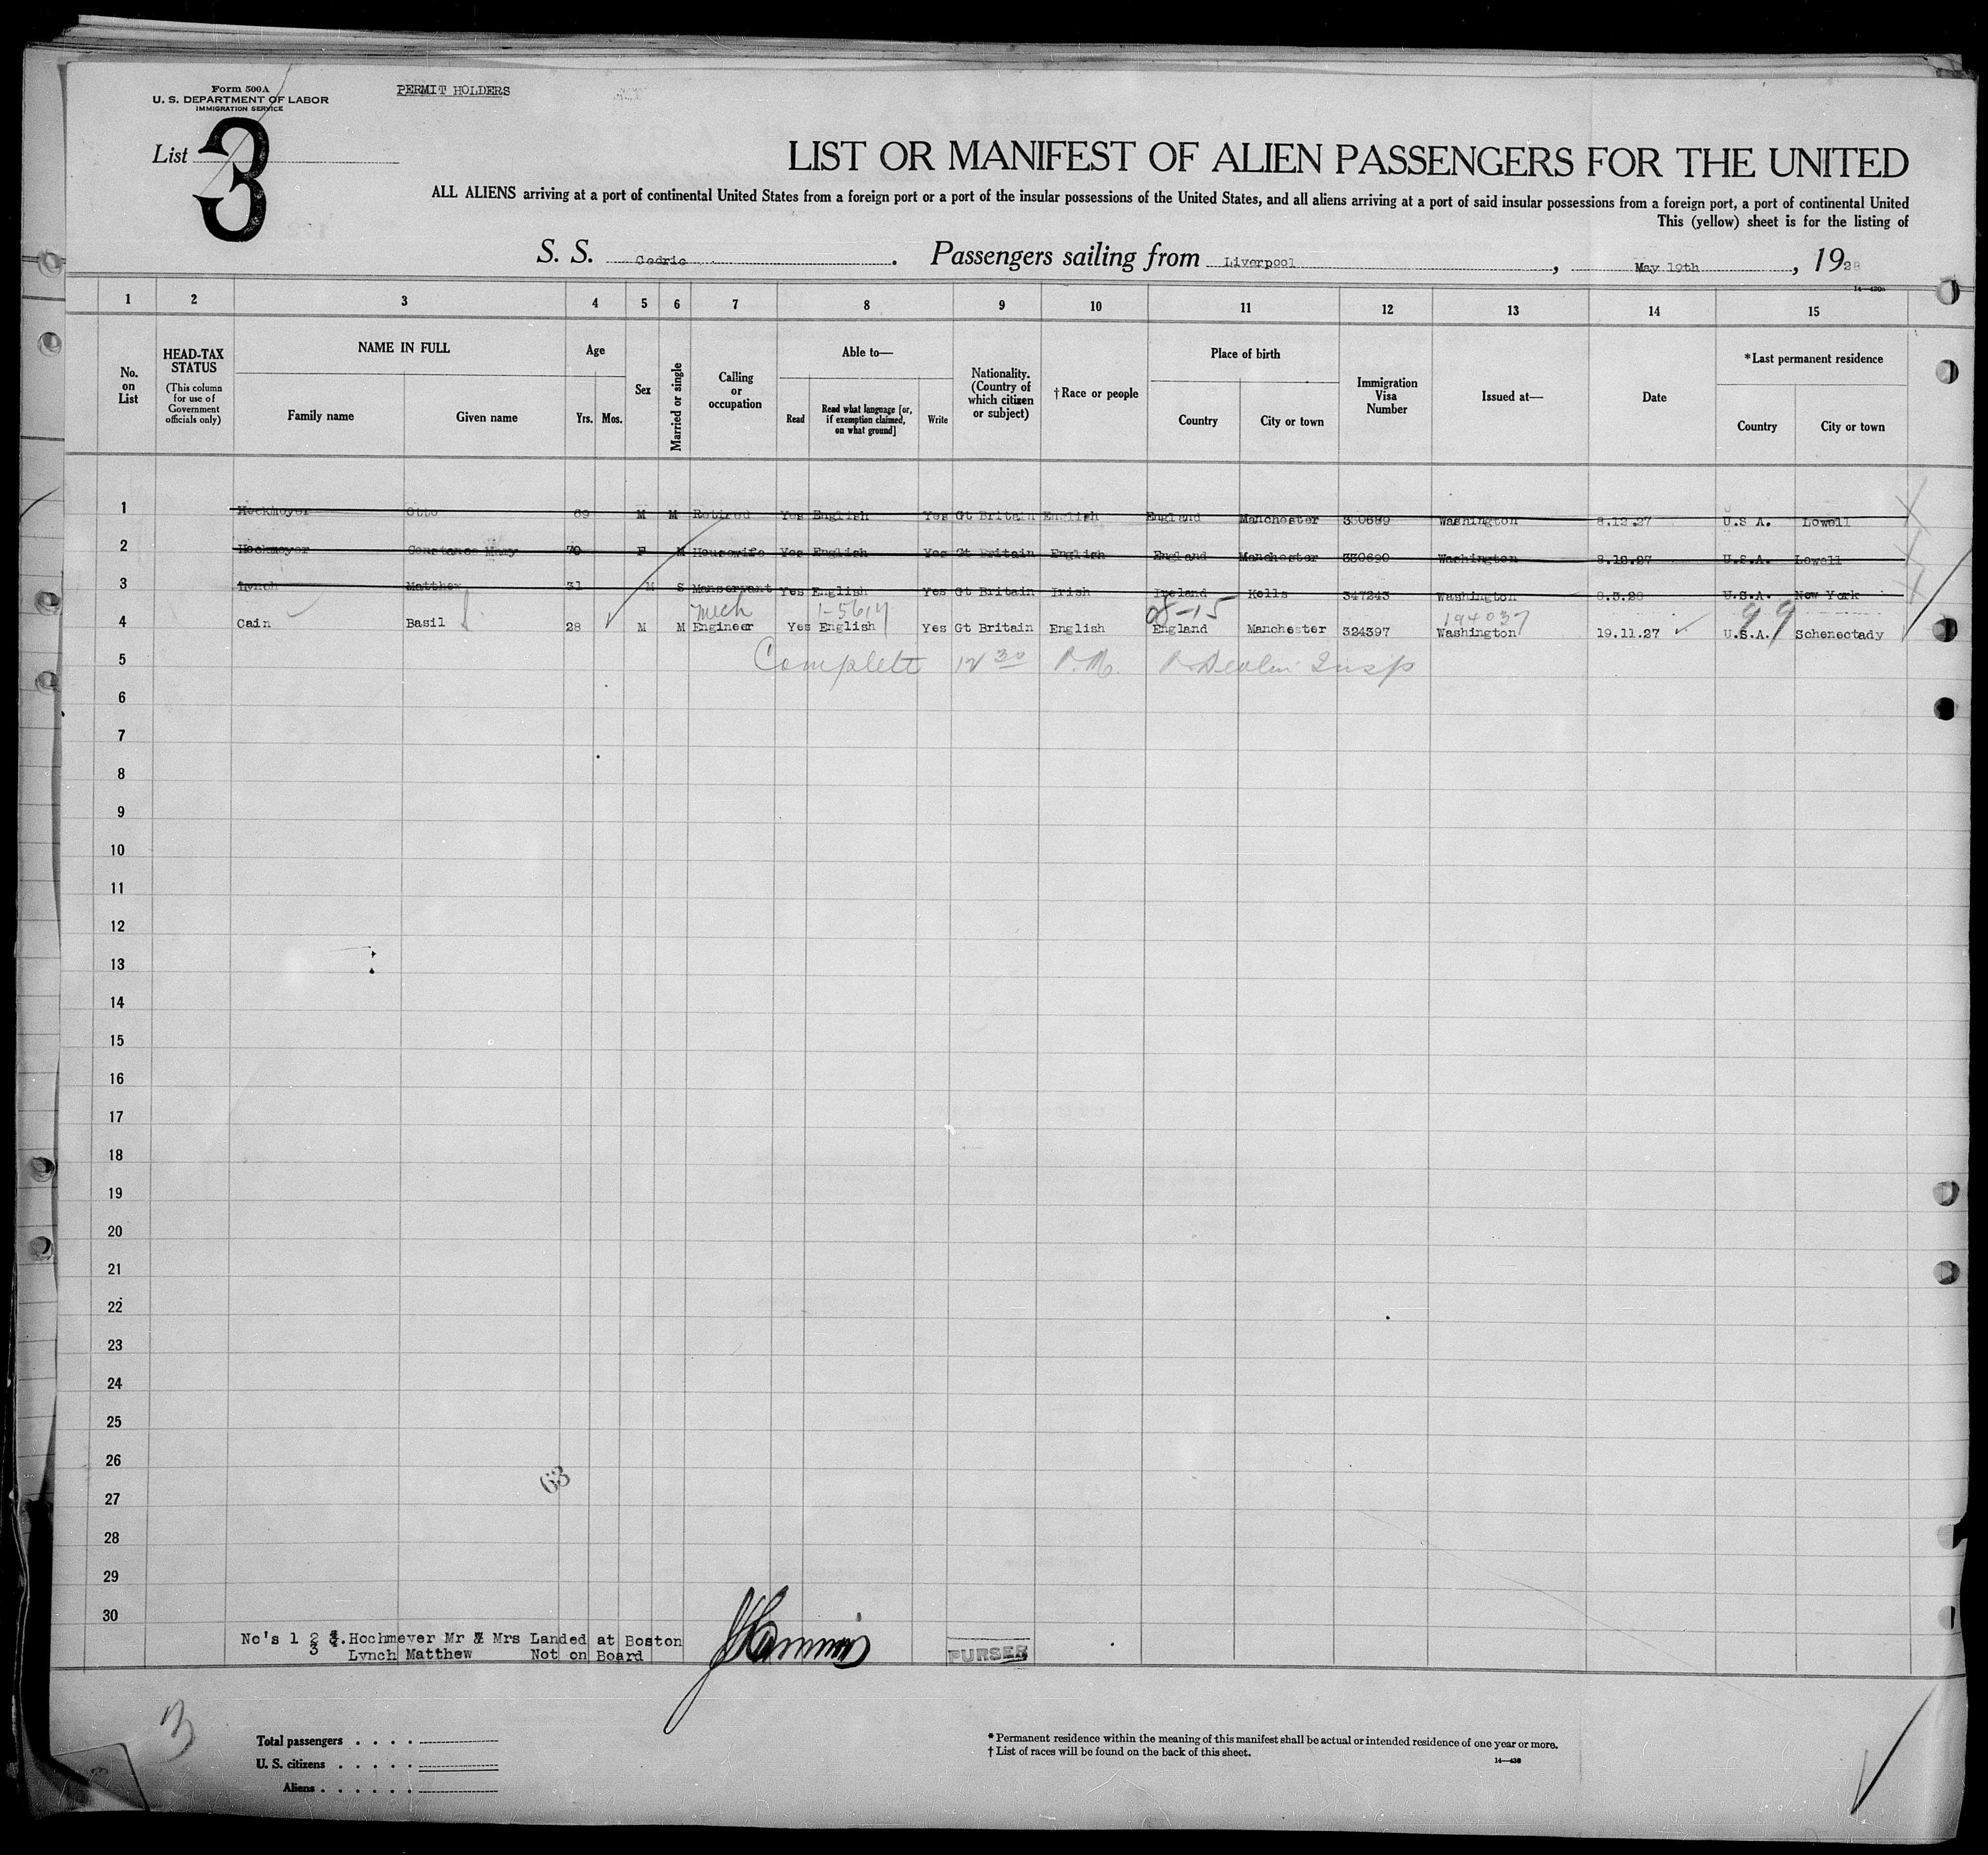 Form 500A
U. S. DEPARTMENT OF LABOR
IMMIGRATION SERVICE
PERMIT HOLDERS
List 3
LIST OR MANIFEST OF ALIEN PASSENGERS FOR THE UNITED
ALL ALIENS arriving at a port of continental United States from a foreign port or a port of the insular possessions of the United States, and all aliens arriving at a port of said insular possessions from a foreign port, a port of continental United
This (yellow) sheet is for the listing of
S. S. Cedric. Passengers sailing from Liverpool, May 19th, 1928
1 2 3 4 5 6 7 8 9 10 11 12 13 14 15
No. on List
HEAD-TAX STATUS (This column for use of Government officials only)
NAME IN FULL Family name Given name
Age Yrs. Mos.
Sex
Married or single
Calling or occupation
Able to— Read Read what language [or, if exemption claimed, on what ground] Write
Nationality. (Country of which citizen or subject)
†Race or people
Place of birth Country City or town
Immigration Visa Number
Issued at—
Date
*Last permanent residence Country City or town
1 Hockmeyer Otto 69 M M Retired Yes English Yes Gt Britain English England Manchester 330689 Washington 8.12.27 U.S A. Lowell
2 Hockmeyer Constance Mary 70 F M Housewife Yes English Yes Gt Britain English England Manchester 330690 Washington 8.12.27 U.S.A. Lowell
3 Lynch Matthew 31 M S Manservant Yes English Yes Gt Britain Irish Ireland Kells 347243 Washington 8.3.28 U.S.A. New York
Mech 08-15 194037 99
4 Cain Basil 28 M M Engineer Yes English Yes Gt Britain English England Manchester 324397 Washington 19.11.27 U.S.A. Schenectady
5 Complete 12 30 P.M. Insp
6
7
8
9
10
11
12
13
14
15
16
17
18
19
20
21
22
23
24
25
26
63
27
28
29
30
No's 1 2 &. Hochmeyer Mr & Mrs Landed at Boston
3 Lynch Matthew Not on Board
PURSER
3
Total passengers . . . .
U. S. citizens . . . . .
Aliens . . . . . .
* Permanent residence within the meaning of this manifest shall be actual or intended residence of one year or more.
† List of races will be found on the back of this sheet.
14—430